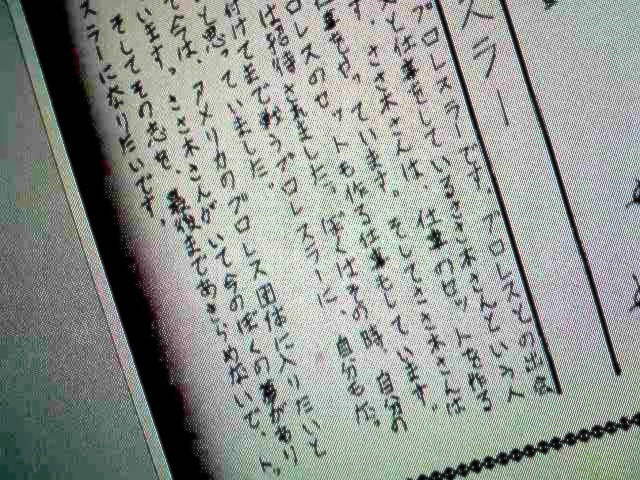 スラー
プロレスラーです。プロレスとの出会
と仕事をしているささ木さんという人
す。ささ木さんは、仕事のセットを作る
仕事をやっています。そしてささ木さんは
ロレスのセットも作る仕事もしています。
は招待されました。ぼくはその時、自分の
付けてまで戦うプロレスラーに、自分も
と思っていました。
て今は、アメリカのプロレス団体に入りたいと
います。ささ木さんがいて今のぼくの夢があり
そしてその志を、最後まであきらめないで、
スラーになりたいです。